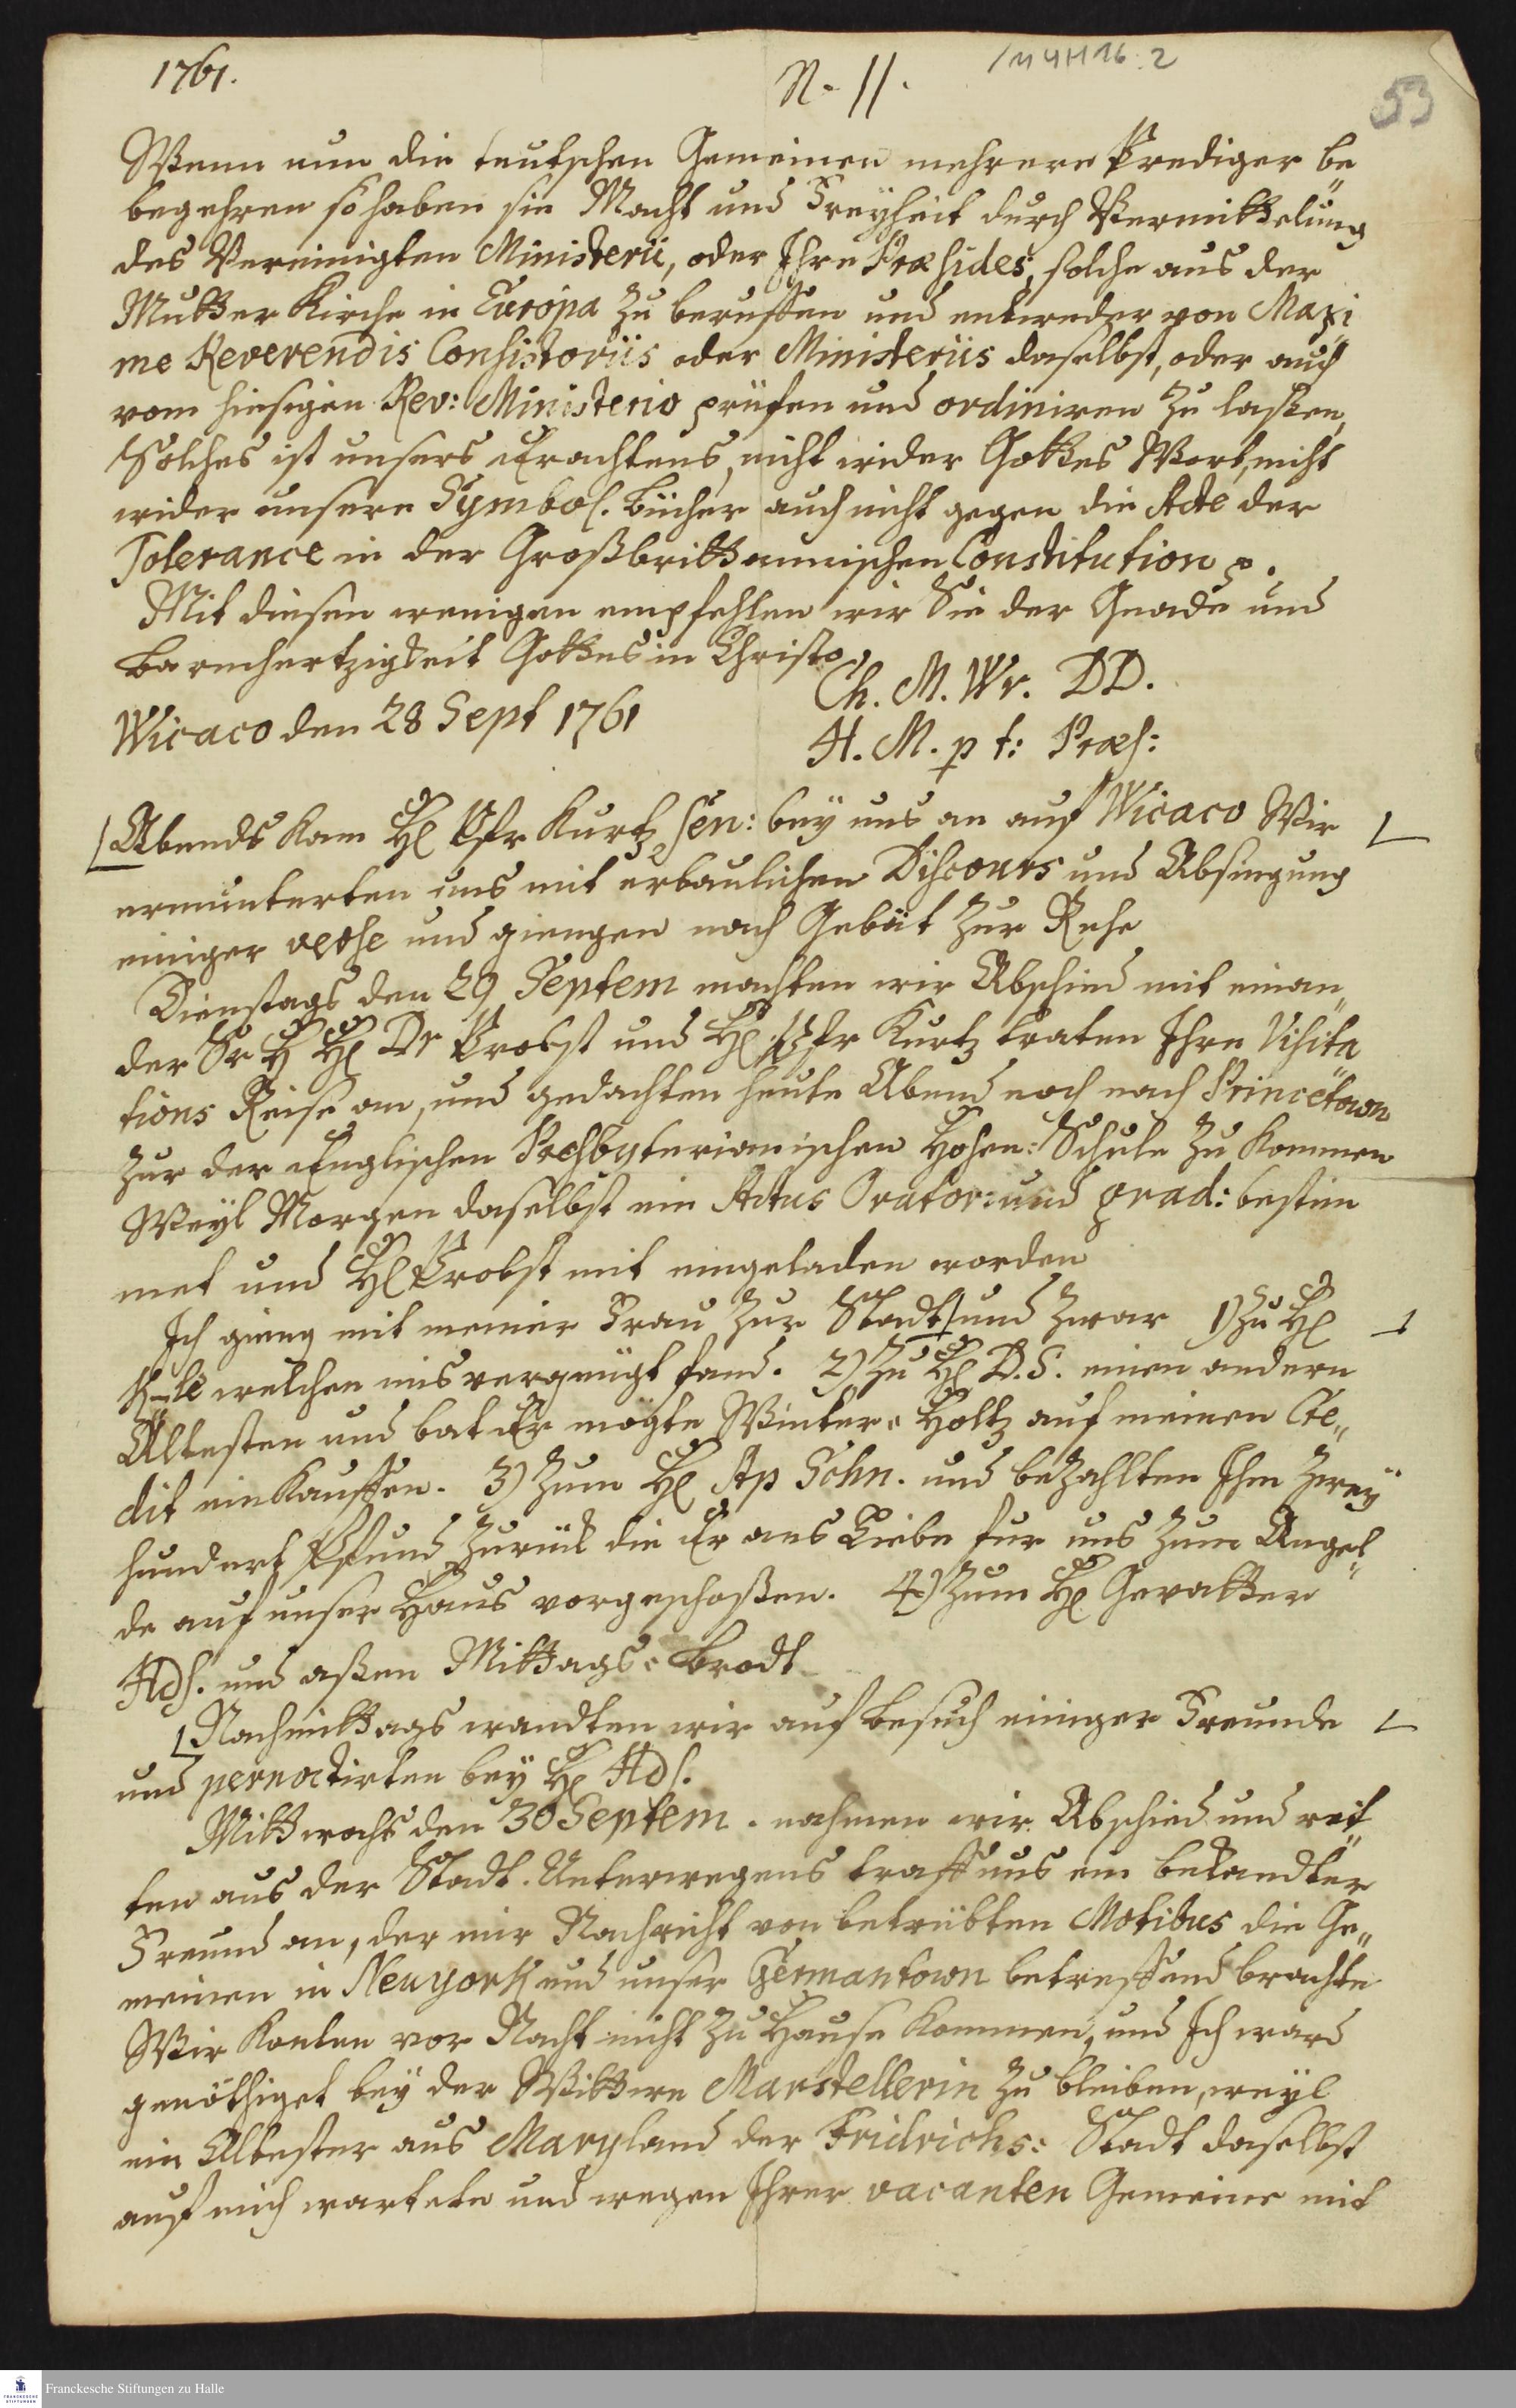 1761.
N. 11.
/M 4 H 16 : 2
53
Wenn nun die teutschen Gemeinen mehrere Prediger be„
begehren so haben sie Macht und Freyheit durch Vermittelung
des Vereinigten Ministerii, oder Ihre Præsides, solche aus der
Mutter Kirche in Europa zu beruffen und entweder von Maxi„
me Reverendis Consistoriis oder Ministeriis daselbst, oder auch
vom hiesigen Rev: Ministerio prüfen und ordiniren zu lassen,
Solches ist unsers Erachtens, nicht wider Gottes Wort, nicht
wider unsere Symbol. Bücher auch nicht gegen die Acte der
Tolerance in der Großbrittannischen Constitution p.
Mit diesen wenigen empfehlen wir Sie der Gnade und
Barmhertzigkeit Gottes in Christo.
Ch. M. Wr. DD.
Wicaco den 28 Sept 1761
H. M. p t: Præs:
Abends kam H Pfr Kurtz sen: bey uns an auf Wicaco Wir
ermunterten uns mit erbaulichen Discours und Absingung
einiger verse und giengen nach Gebät zur Ruhe
Dienstags den 29 Septem machten wir Abschied mit einan„
der Dr Probst und H Pfr Kurtz traten Ihre Visita„
tions Reise an, und gedachten heute Abend noch nach Princetown
zur der Englischen Presbyterianischen Hohen: Schule zu kommen
Weyl Morgen daselbst ein Actus Orator: und grad: bestim„
met und H Probst mit eingeladen worden
Ich gieng mit meiner Frau zur Stadt und zwar 1) zu H
K-le welchen misvergnügt fand. 2) zu H D. S. einen andern
Ältesten und bat Er mögte Winter: Holtz auf meinen Cre„
dit einkauffen. 3) zum H Ap Sohn. und bezahlten Ihm zwey
hundert Pfund zurück die Er aus Liebe für uns zum Angel„
de auf unser Haus vorgeschoßen. 4) zum H Gevatter
Hds. und aßen Mittags: Brodt
Nachmittags wandten wir auf Besuch einiger Freunde
und pernoctirten bey H Hds.
Mittwochs den 30 Septem. nahmen wir Abschied und rit„
ten aus der Stadt. Unterwegens traff uns ein bekandter
Freund an, der mir Nachricht von betrübten Motibus die Ge„
meinen in Neuyork und unser Germantown betreffend brachte
Wir konten vor Nacht nicht zu Hause kommen, und Ich ward
genöthiget bey der Wittwe Marstellerin zu bleiben, weyl
ein Altester aus Maryland der Fridrichs: Stadt daselbst
auf mich wartete und wegen Ihrer vacanten Gemeine mit
Franckesche Stiftungen zu Halle